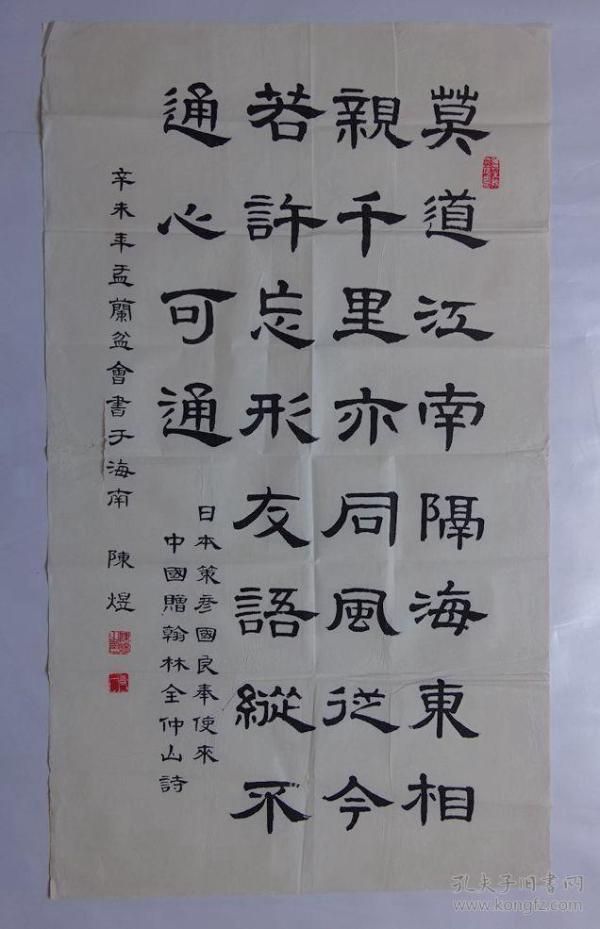 莫道江南隔海東相
親千里亦同風从今
若許忘形友語縱不
通心可通
日本策彦國良奉使來
中國贈翰林全仲山詩
辛未年盂蘭盆會書于海南 陳煜
孔夫子旧书网
www.kongfz.com